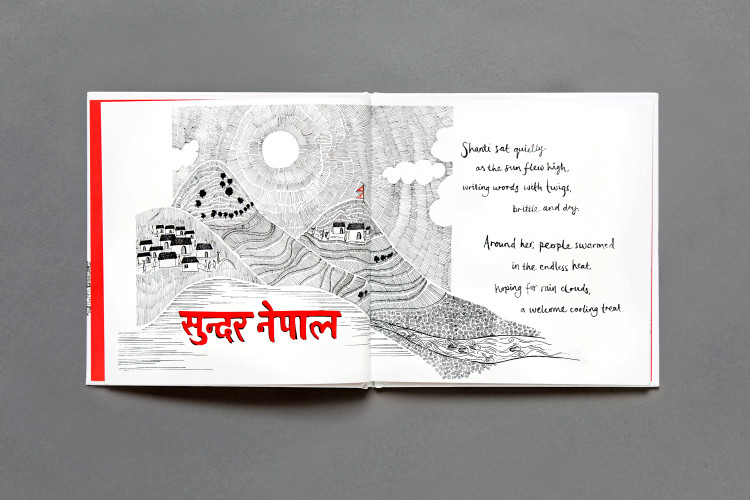 सुन्दर नेपाल
Shanti sat quietly
as the sun flew high,
writing words with twigs,
brittle and dry.
Around her, people swarmed
in the endless heat,
hoping for rain clouds,
a welcome cooling treat.